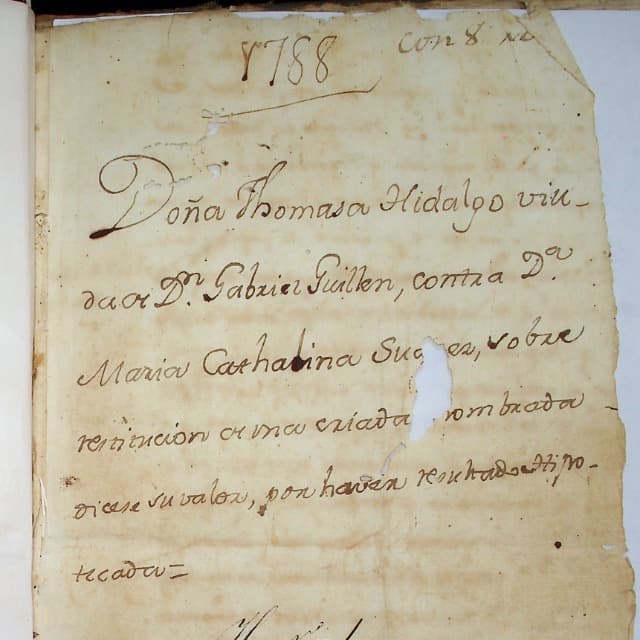 1788
con 8
Doña Thomasa Hidalgo viu-
da de Dn. Gabriel Guillen, contra Da.
Maria Cathalina Su er, sobre
restitucion de una criada nombrada
su valor, por haver resultado Hipo-
tecada=